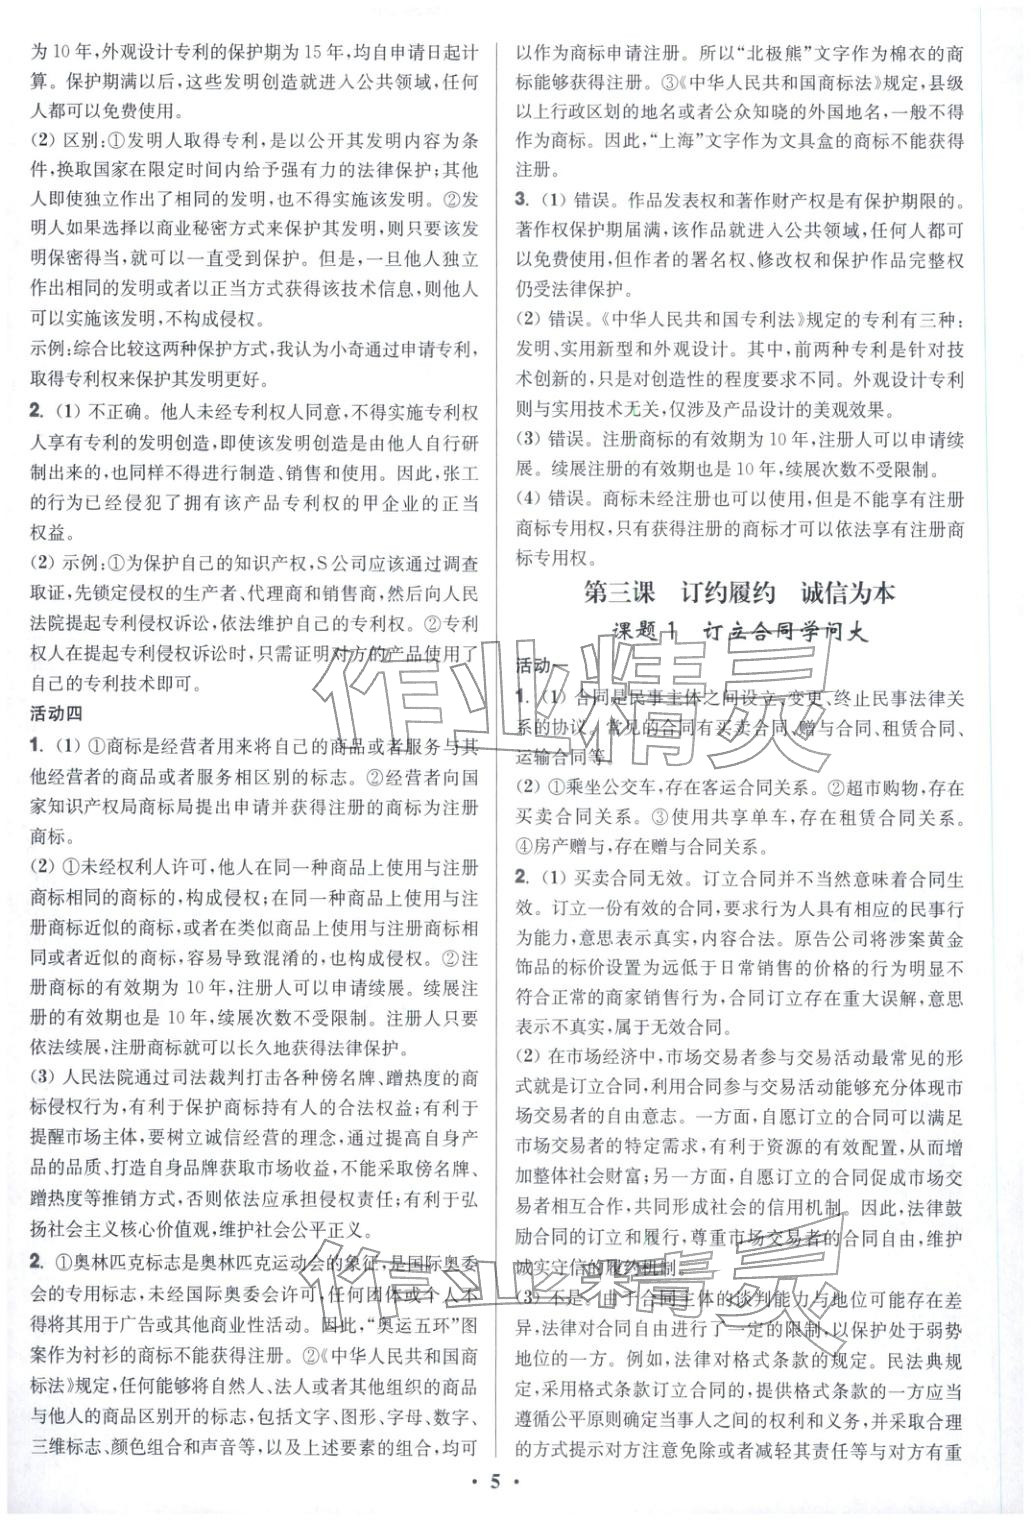 为 10 年,外观设计专利的保护期为 15 年,均自申请日起计
算。保护期满以后,这些发明创造就进入公共领域,任何
人都可以免费使用。
(2) 区别:①发明人取得专利,是以公开其发明内容为条
件,换取国家在限定时间内给予强有力的法律保护;其他
人即使独立作出了相同的发明,也不得实施该发明。②发
明人如果选择以商业秘密方式来保护其发明,则只要该发
明保密得当,就可以一直受到保护。但是,一旦他人独立
作出相同的发明或者以正当方式获得该技术信息,则他人
可以实施该发明,不构成侵权。
示例:综合比较这两种保护方式,我认为小奇通过申请专利,
取得专利权来保护其发明更好。
2. (1) 不正确。他人未经专利权人同意,不得实施专利权
人享有专利的发明创造,即使该发明创造是由他人自行研
制出来的,也同样不得进行制造、销售和使用。因此,张工
的行为已经侵犯了拥有该产品专利权的甲企业的正当
权益。
(2) 示例:①为保护自己的知识产权,S 公司应该通过调查
取证,先锁定侵权的生产者、代理商和销售商,然后向人民
法院提起专利侵权诉讼,依法维护自己的权利。②专利
权人在提起专利侵权诉讼时,只需证明对方的产品使用了
自己的专利技术即可。
活动四
1. (1) ①商标是经营者用来将自己的商品或者服务与其
他经营者的商品或者服务相区别的标志。②经营者向国
家知识产权局商标局提出申请并获得注册的商标为注册
商标。
(2) ①未经权利人许可,他人在同一种商品上使用与注册
商标相同的商标的,构成侵权;在同一种商品上使用与注
册商标近似的商标,或者在类似商品上使用与注册商标相
同或者近似的商标,容易导致混淆的,也构成侵权。②注
册商标的有效期为 10 年,注册人可以申请续展。续展注
册的有效期也是 10 年,续展次数不受限制。注册人只要
依法续展,注册商标就可以长久地获得法律保护。
(3) 人民法院通过司法裁判打击各种傍名牌、蹭热度的商
标侵权行为,有利于保护商标持有人的合法权益;有利于
提醒市场主体,要树立诚信经营的理念,通过提高自身产
品的品质、打造自身品牌获取市场收益,不能采取傍名牌、
蹭热度等推销方式,否则依法应承担侵权责任;有利于弘
扬社会主义核心价值观,维护社会公平正义。
2. ①奥林匹克标志是奥林匹克运动会的象征,是国际奥委
会的专用标志,未经国际奥委会许可,任何团体或个人不
得将其用于广告或其他商业性活动。因此,“奥运五环”图
案作为衬衫的商标不能获得注册。②《中华人民共和国商
标法》规定,任何能够将自然人、法人或者其他组织的商品
与他人的商品区别开的标志,包括文字、图形、字母、数字、
三维标志、颜色组合和声音等,以及上述要素的组合,均可
以作为商标申请注册。所以“北极熊”文字作为棉衣的商
标能够获得注册。③《中华人民共和国商标法》规定,县级
以上行政区划的地名或者公众知晓的外国地名,一般不得
作为商标。因此,“上海”文字作为文具盒的商标不能获得
注册。
3. (1) 错误。作品发表权和著作财产权是有保护期限的。
著作权保护期届满,该作品就进入公共领域,任何人都可
以免费使用,但作者的署名权、修改权和保护作品完整权
仍受法律保护。
(2) 错误。《中华人民共和国专利法》规定的专利有三种:
发明、实用新型和外观设计。其中,前两种专利是针对技
术创新的,只是对创造性的程度要求不同。外观设计专利
则与实用技术无关,仅涉及产品设计的美观效果。
(3) 错误。注册商标的有效期为 10 年,注册人可以申请续
展。续展注册的有效期也是 10 年,续展次数不受限制。
(4) 错误。商标未经注册也可以使用,但是不能享有注册
商标专用权,只有获得注册的商标才可以依法享有注册商
标专用权。
第三课 订约履约 诚信为本
课题 1 订立合同学问大
活动一
1. (1) 合同是民事主体之间设立、变更、终止民事法律关
系的协议。常见的合同有买卖合同、赠与合同、租赁合同、
运输合同等。
(2) ①乘坐公交车,存在客运合同关系。②超市购物,存在
买卖合同关系。③使用共享单车,存在租赁合同关系。
④房产赠与,存在赠与合同关系。
2. (1) 买卖合同无效。订立合同并不当然意味着合同生
效。订立一份有效的合同,要求行为人具有相应的民事行
为能力,意思表示真实,内容合法。原告公司将涉案黄金
饰品的标价设置为远低于日常销售的价格的行为明显不
符合正常的商家销售行为,合同订立存在重大误解,意思
表示不真实,属于无效合同。
(2) 在市场经济中,市场交易者参与交易活动最常见的形
式就是订立合同,利用合同参与交易活动能够充分体现市
场交易者的自由意志。一方面,自愿订立的合同可以满足
市场交易者的特定需求,有利于资源的有效配置,从而增
加整体社会财富;另一方面,自愿订立的合同促成市场交
易者相互合作,共同形成社会的信用机制。因此,法律鼓
励合同的订立和履行,尊重市场交易者的合同自由,维护
诚实守信的履约机制。
(3) 不是。由于合同主体的谈判能力与地位可能存在差
异,法律对合同自由进行了一定的限制,以保护处于弱势
地位的一方。例如,法律对格式条款的规定。民法典规
定,采用格式条款订立合同的,提供格式条款的一方应当
遵循公平原则确定当事人之间的权利和义务,并采取合理
的方式提示对方注意免除或者减轻其责任等与对方有重
• 5 •
作业精灵
作业精灵